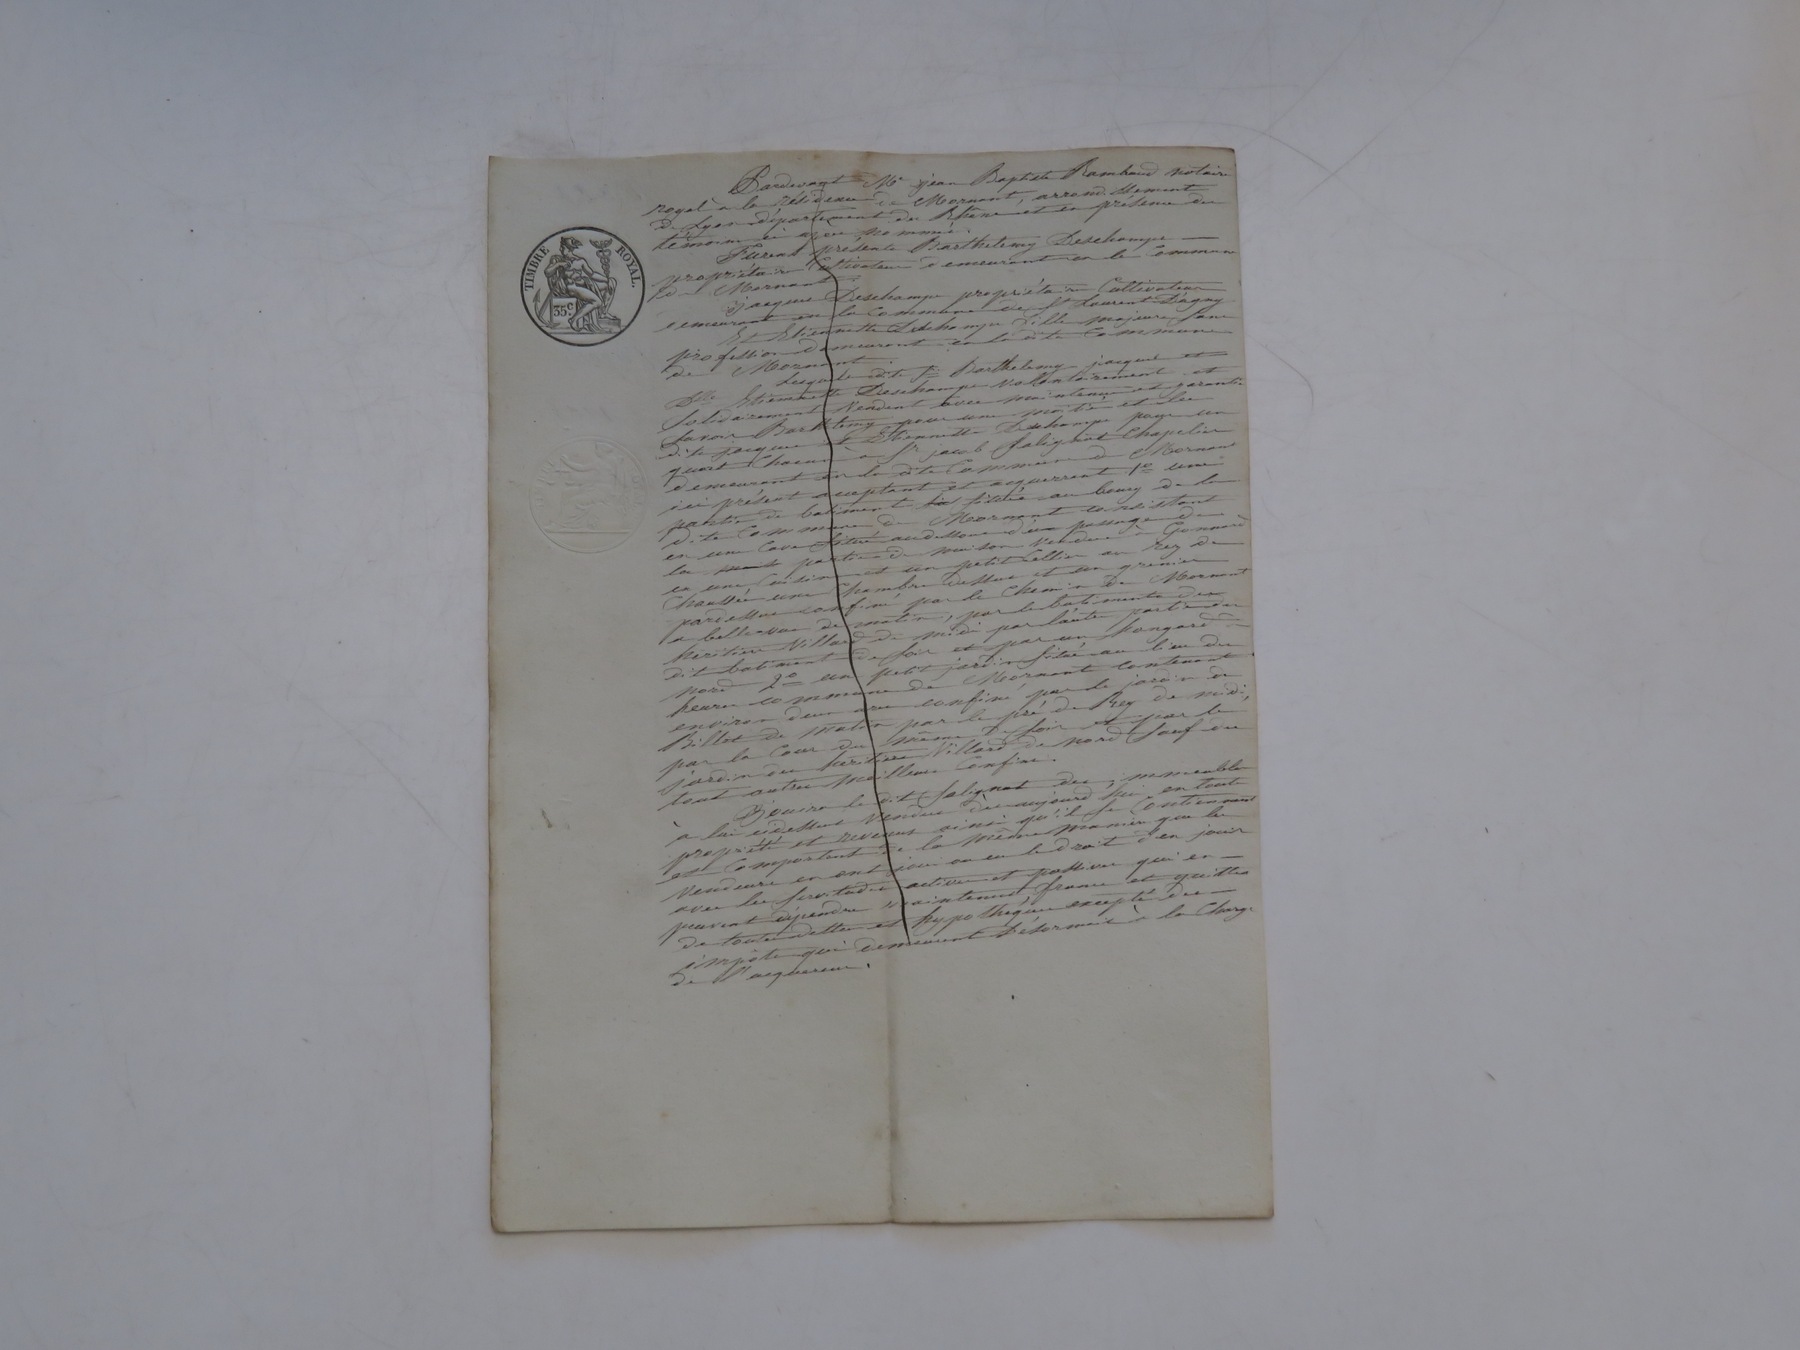 TIMBRE ROYAL.
35 c.
Pardevant Me jean Baptiste Rambaud notaire
royal à la résidence de Mornant, arrondissement
de Lyon département du Rhône et en présence des
témoins ci après nommés.
Furent présents Barthelemy Deschamps
propriétaire Cultivateur demeurant en la Commune
de Mornant
jacques Deschamps propriétaire Cultivateur
demeurant en la Commune de St Laurent Dagny
Et Etiennette Deschamps fille majeure sans
profession demeurant en la dite Commune
de Mornant
Lesquels dits Barthelemy jacques et
Dlle Etiennette Deschamps volontairement et
solidairement vendent avec maintenue et garantie
savoir Barthelemy pour une moitié et les
dits jacques et Etiennette Deschamps pour un
quart chacun à Sr jacob Salignat Chapelier
demeurant en la dite Commune de Mornant
ici présent acceptant et acquerrant 1o une
partie de batiment située au bourg de la
dite Commune de Mornant consistant
en une Cave située audessous du passage de
la partie de maison vendue à
en une Cuisine et un petit Cellier au rez de
Chaussée une Chambre dessus et un grenier
pardessus confiné par le Chemin de Mornant
a bellevue de matin, par les batiments des
heritiers Villard de midi par l'autre partie du
dit batiment de soir et par un hangard
nord 2o un petit jardin situé au lieu des
heures commune de Mornant contenant
environ deux ares confiné par le jardin de
Billet de matin par le pré de Rey de midi,
par la Cour du même de soir et par le
jardin des heritiers Villard de nord sauf de
tout autres meilleurs Confins.
Jouira le dit Salignat des immeubles
à lui cidessus vendus dès aujourd'hui en toute
propriété et revenus ainsi qu'ils se Contiennent
et Comportent de la même manière que les
vendeurs en ont joui ou eu le droit d'en jouir
avec les servitudes actives et passives qui en
peuvent dépendre maintenus francs et quittes
de toutes dettes et hypothèques excepté des
impôts qui demeurent désormais à la Charge
de l'acquereur.